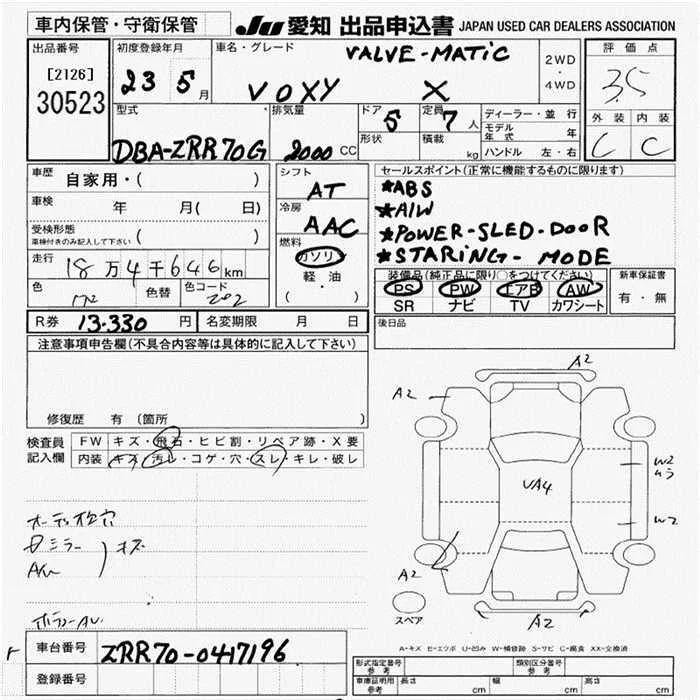 車内保管・守衛保管 JU 愛知 出品申込書 JAPAN USED CAR DEALERS ASSOCIATION
出品番号 初度登録年月 車名・グレード VALVE-MATIC 2WD・4WD 評価点
[2126] 23 5月 VOXY X 3.5
30523
型式 排気量 ドア 5 定員 7人 ディーラー・並行 外装 内装
モデル年式 年
DBA-ZRR70G 2000 CC 形状 積載 kg ハンドル 左・右 C C
車歴 自家用・( ) シフト AT セールスポイント(正常に機能するものに限ります)
★ABS
車検 年 月(日) 冷房 AAC ★A/W
受検形態 ( ) ★POWER-SLED-DOOR
車検付きのみ記入して下さい 燃料 ガソリン ★STARING-MODE
走行 18万4千646km 軽・油 装備品(純正品に限り○をつけてください) 新車保証書
色 色替 色コード 202 ( ) PS PW エアB AW 有・無
SR ナビ TV カワシート
R券 13.330円 名変期限 月 日 後日品
注意事項申告欄(不具合内容等は具体的に記入して下さい)
A2
A2
修復歴 有 (箇所 )
検査員記入欄 FW キズ・飛石・ヒビ割・リペア跡・X要
内装 キズ・汚レ・コゲ・穴・スレ・キレ・破レ
W2
ムラ
VA4
W2
A2
スペア A2
A-キズ E-エクボ U-凹み W-補修跡 S-サビ C-腐食 XX-交換済
車台番号 ZRR70-0417196
登録番号
型式指定番号 参考 類別区分番号 参考
車庫証明用 参考 長さ cm 幅 cm 高さ cm